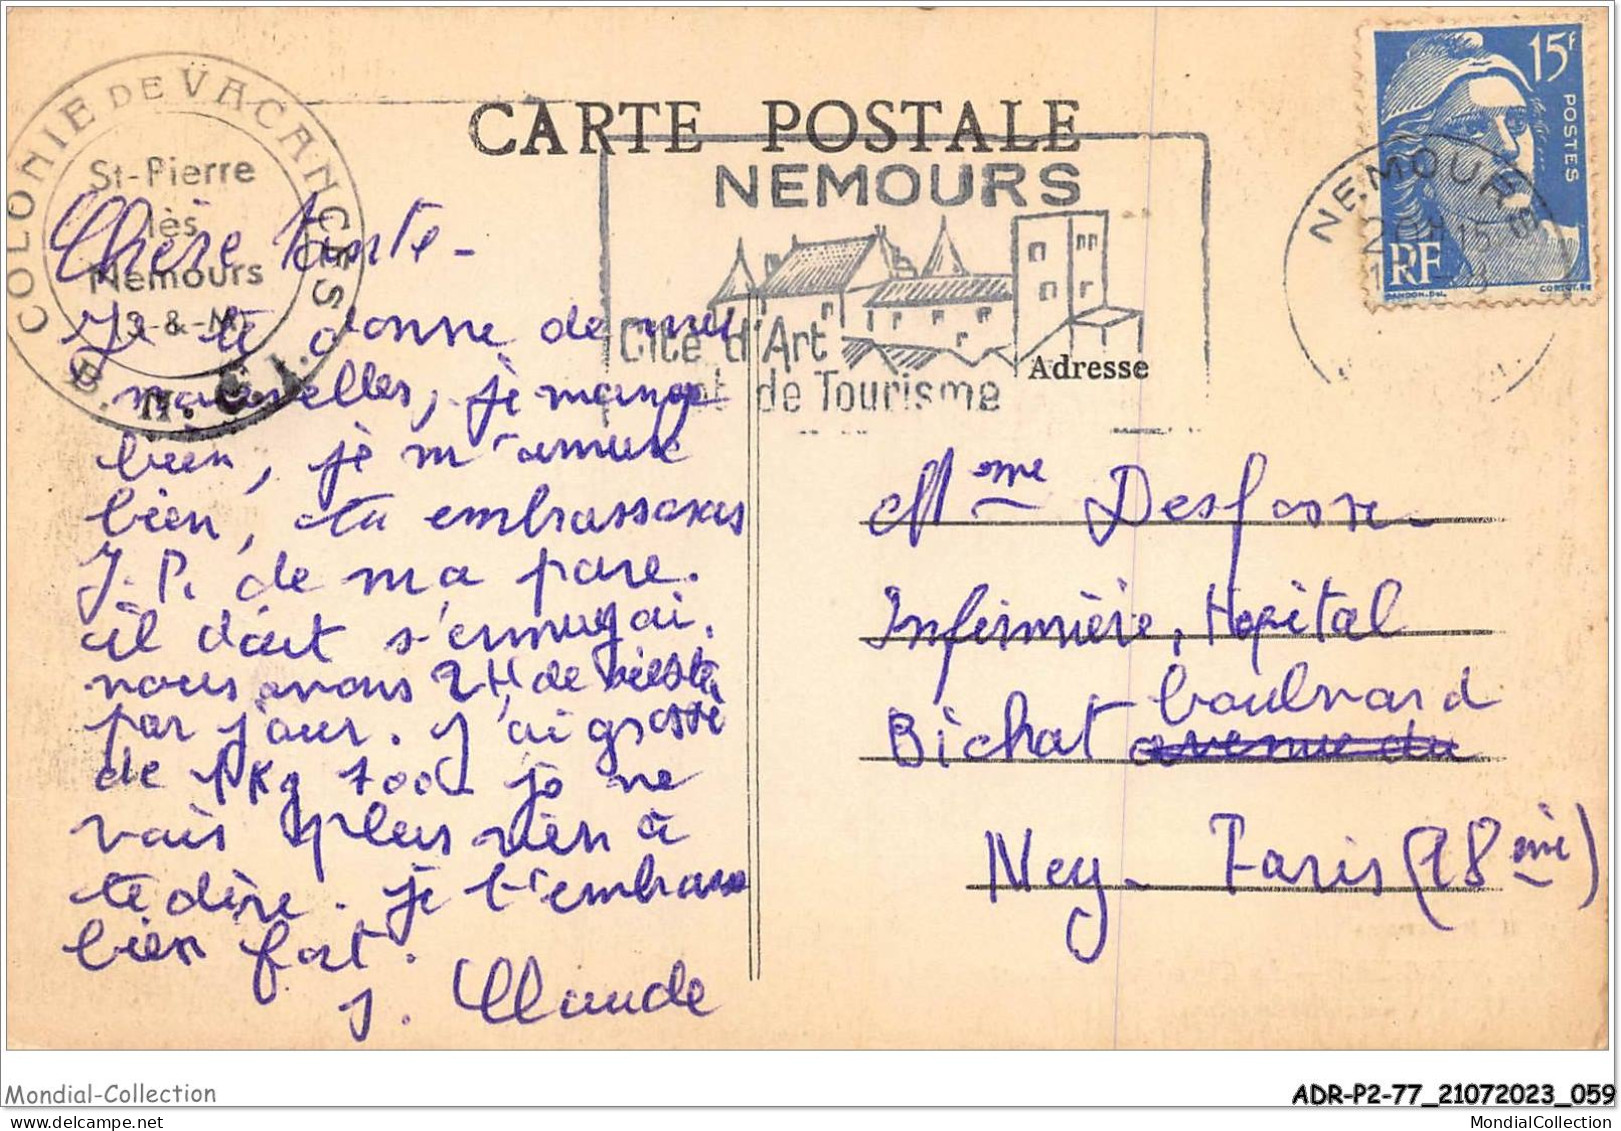 CARTE POSTALE
COLONIE DE VACANCES
St-Pierre
lès
Nemours
(S.-&-M.)
B. N. C. I.
NEMOURS
Cité d'Art
et de Tourisme
15F
POSTES
RF
GANDON.Del.
CORTOT.Sc
NEMOURS
20H15
Chère tante-
Je te donne de mes
nouvelles, je mange
bien, je m'amuse
bien, tu embrasseras
J. P. de ma pare.
il doit s'ennuyai.
nous avons 2H de sieste
par jour. J'ai grossi
de 1Kg 700 je ne
vais plus rien à
te dire. je t'embrasse
bien fort.
J. Claude
Adresse
Mme Desfosse-
Infirmière, Hopital
boulvard
Bichat avenue du
Ney- Paris (18ème)
Mondial-Collection
ADR-P2-77_21072023_059
delcampe.net
MondialCollection